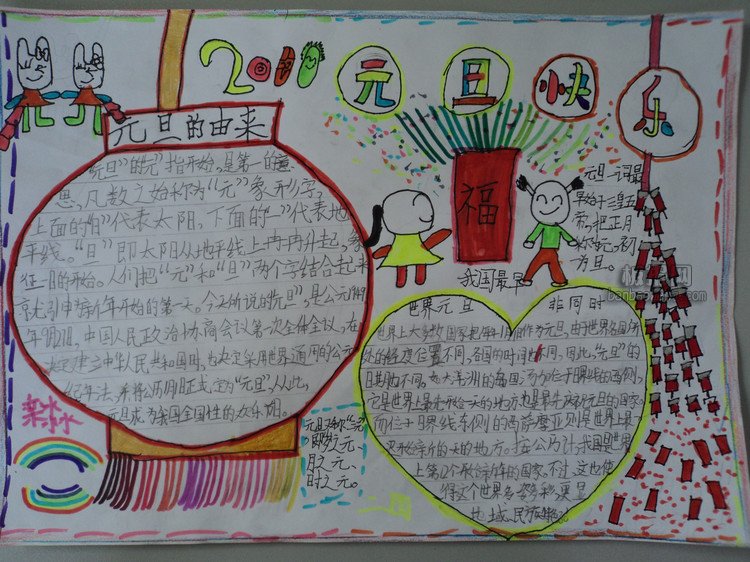 2011
元旦快乐
元旦的由来
"元旦"的"元"指开始,是第一的意
思,凡数之始称为"元"象形字,
上面的"日"代表太阳,下面的"一"代表地
平线。"旦"即太阳从地平线上冉冉升起,象
征一日的开始。人们把"元"和"旦"两个字结合起来
就引申为新年开始的第一天。今天所说的"元旦",是公元1949
年9月27日,中国人民政治协商会议第一次全体会议,在
决定建立中华人民共和国时,也决定采用世界通用的公元
纪年法,并将公历1月1日正式定为"元旦"从此,
元旦成为我国全国性的欢乐节日。
福
元旦一词最
早始于三皇五
帝,把正月
称元,初一
为旦。
我国最早
世界元旦 非同时
世界上大多数国家把每年1月1日作为元旦,由于世界各国所
处的经度位置不同,各国的时间也不同,因此,"元旦"的
日期也不同。如大洋洲的岛国汤加位于日界线的西侧,
它是世界上最先开始一天的地方,也是最先庆祝元旦的国家。
而位于日界线东侧的西萨摩亚则是世界上最
迟开始新的一天的地方。按公历计,我国是世界
上第12个开始新年的国家,不过,这也使
得这个世界多姿多彩,更显
地域、民族
元旦又称"三元"
即岁之元、
月之元、
时之元。